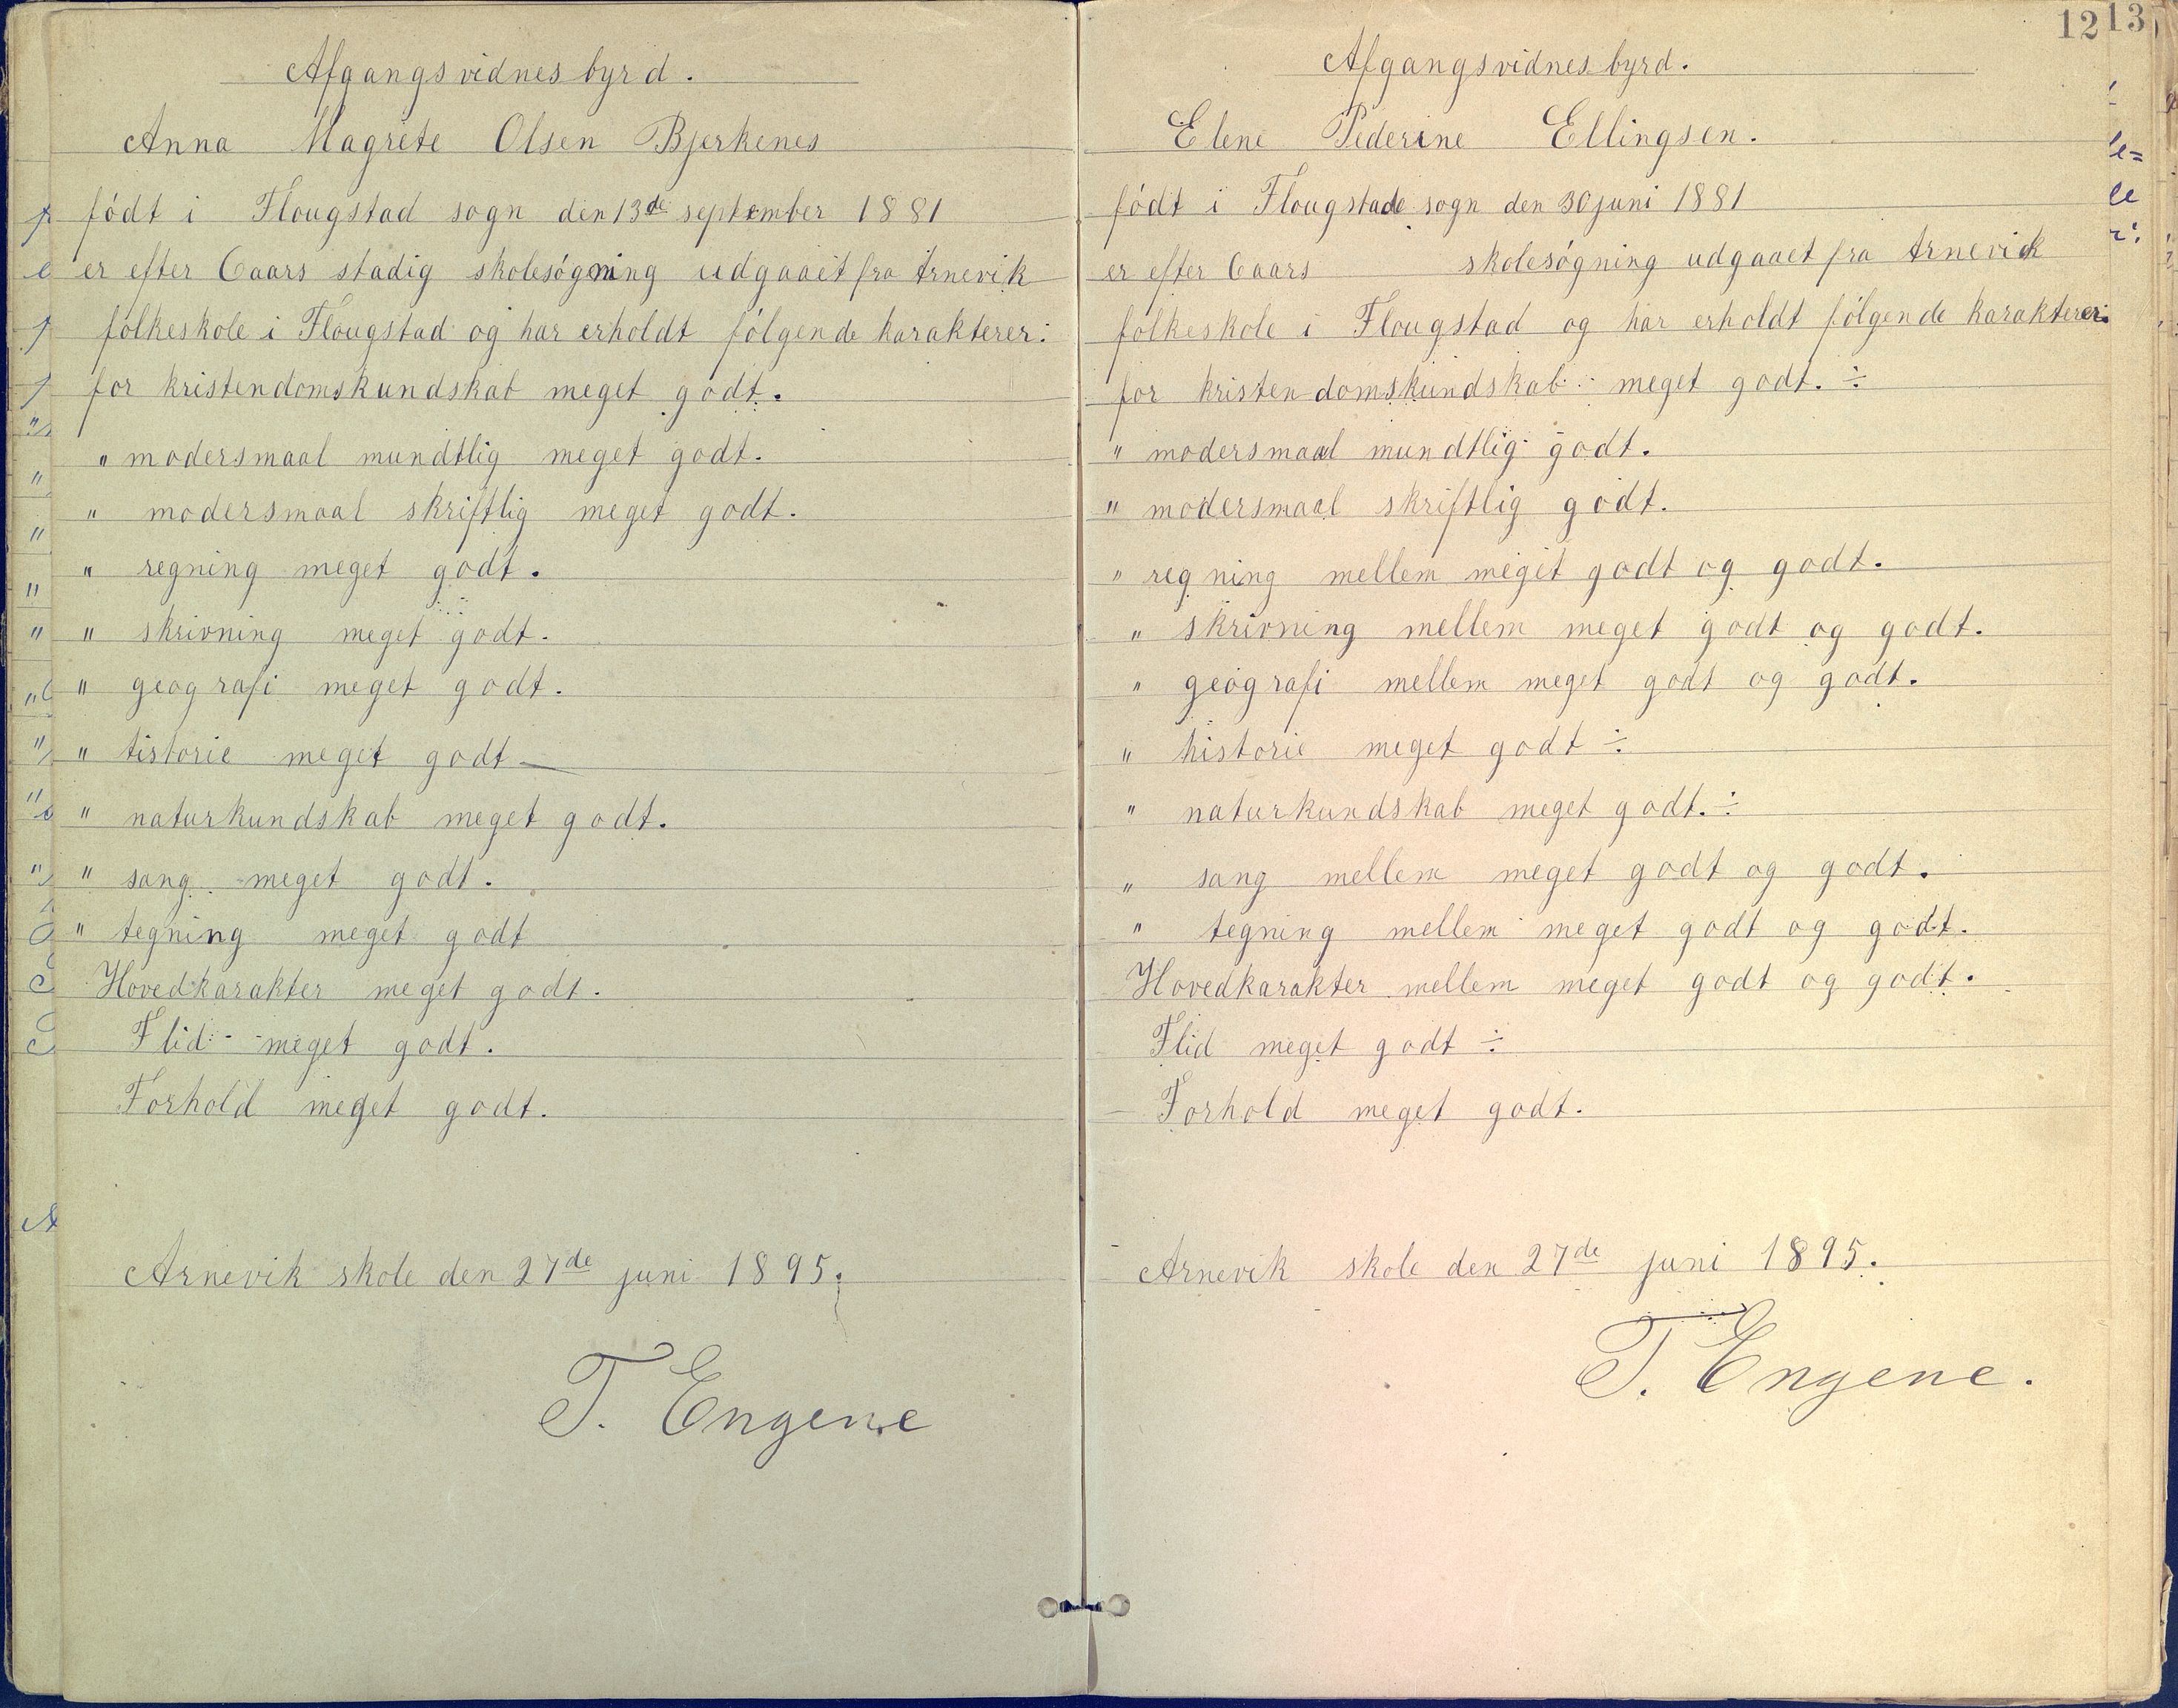 Afgangsvidnesbyrd.
Anna Magrete Olsen Bjerkenes
födt i Flougstad sogn den 13de september 1881
er efter 6aars stadig skolesögning udgaaet fra Arnevik
folkeskole i Flougstad og har erholdt fölgende karakterer:
for kristendomskundskab meget godt.
" modersmaal mundtlig meget godt.
" modersmaal skriftlig meget godt.
" regning meget godt.
" skrivning meget godt.
" geografi meget godt.
" tistorie meget godt
" naturkundskab meget godt.
" sang meget godt.
" tegning meget godt
Hovedkarakter meget godt.
Flid meget godt.
Forhold meget godt.
Arnevik skole den 27de juni 1895.
T. Engene
12 13
Afgangsvidnesbyrd.
Elene Pederine Ellingsen.
födt i Flougstade sogn den 30 juni 1881
er efter 6aars skolesögning udgaaet fra Arnevik
folkeskole i Flougstad og har erholdt fölgende karakterer:
for kristendomskundskab meget godt. ÷
" modersmaal mundtlig godt.
" modersmaal skriftlig godt.
" regning mellem meget godt og godt.
" skrivning mellem meget godt og godt.
" geografi mellem meget godt og godt.
" historie meget godt ÷
" naturkundskab meget godt. ÷
" sang mellem meget godt og godt.
" tegning mellem meget godt og godt.
Hovedkarakter mellem meget godt og godt.
Flid meget godt ÷
Forhold meget godt.
Arnevik skole den 27de juni 1895.
T. Engene.